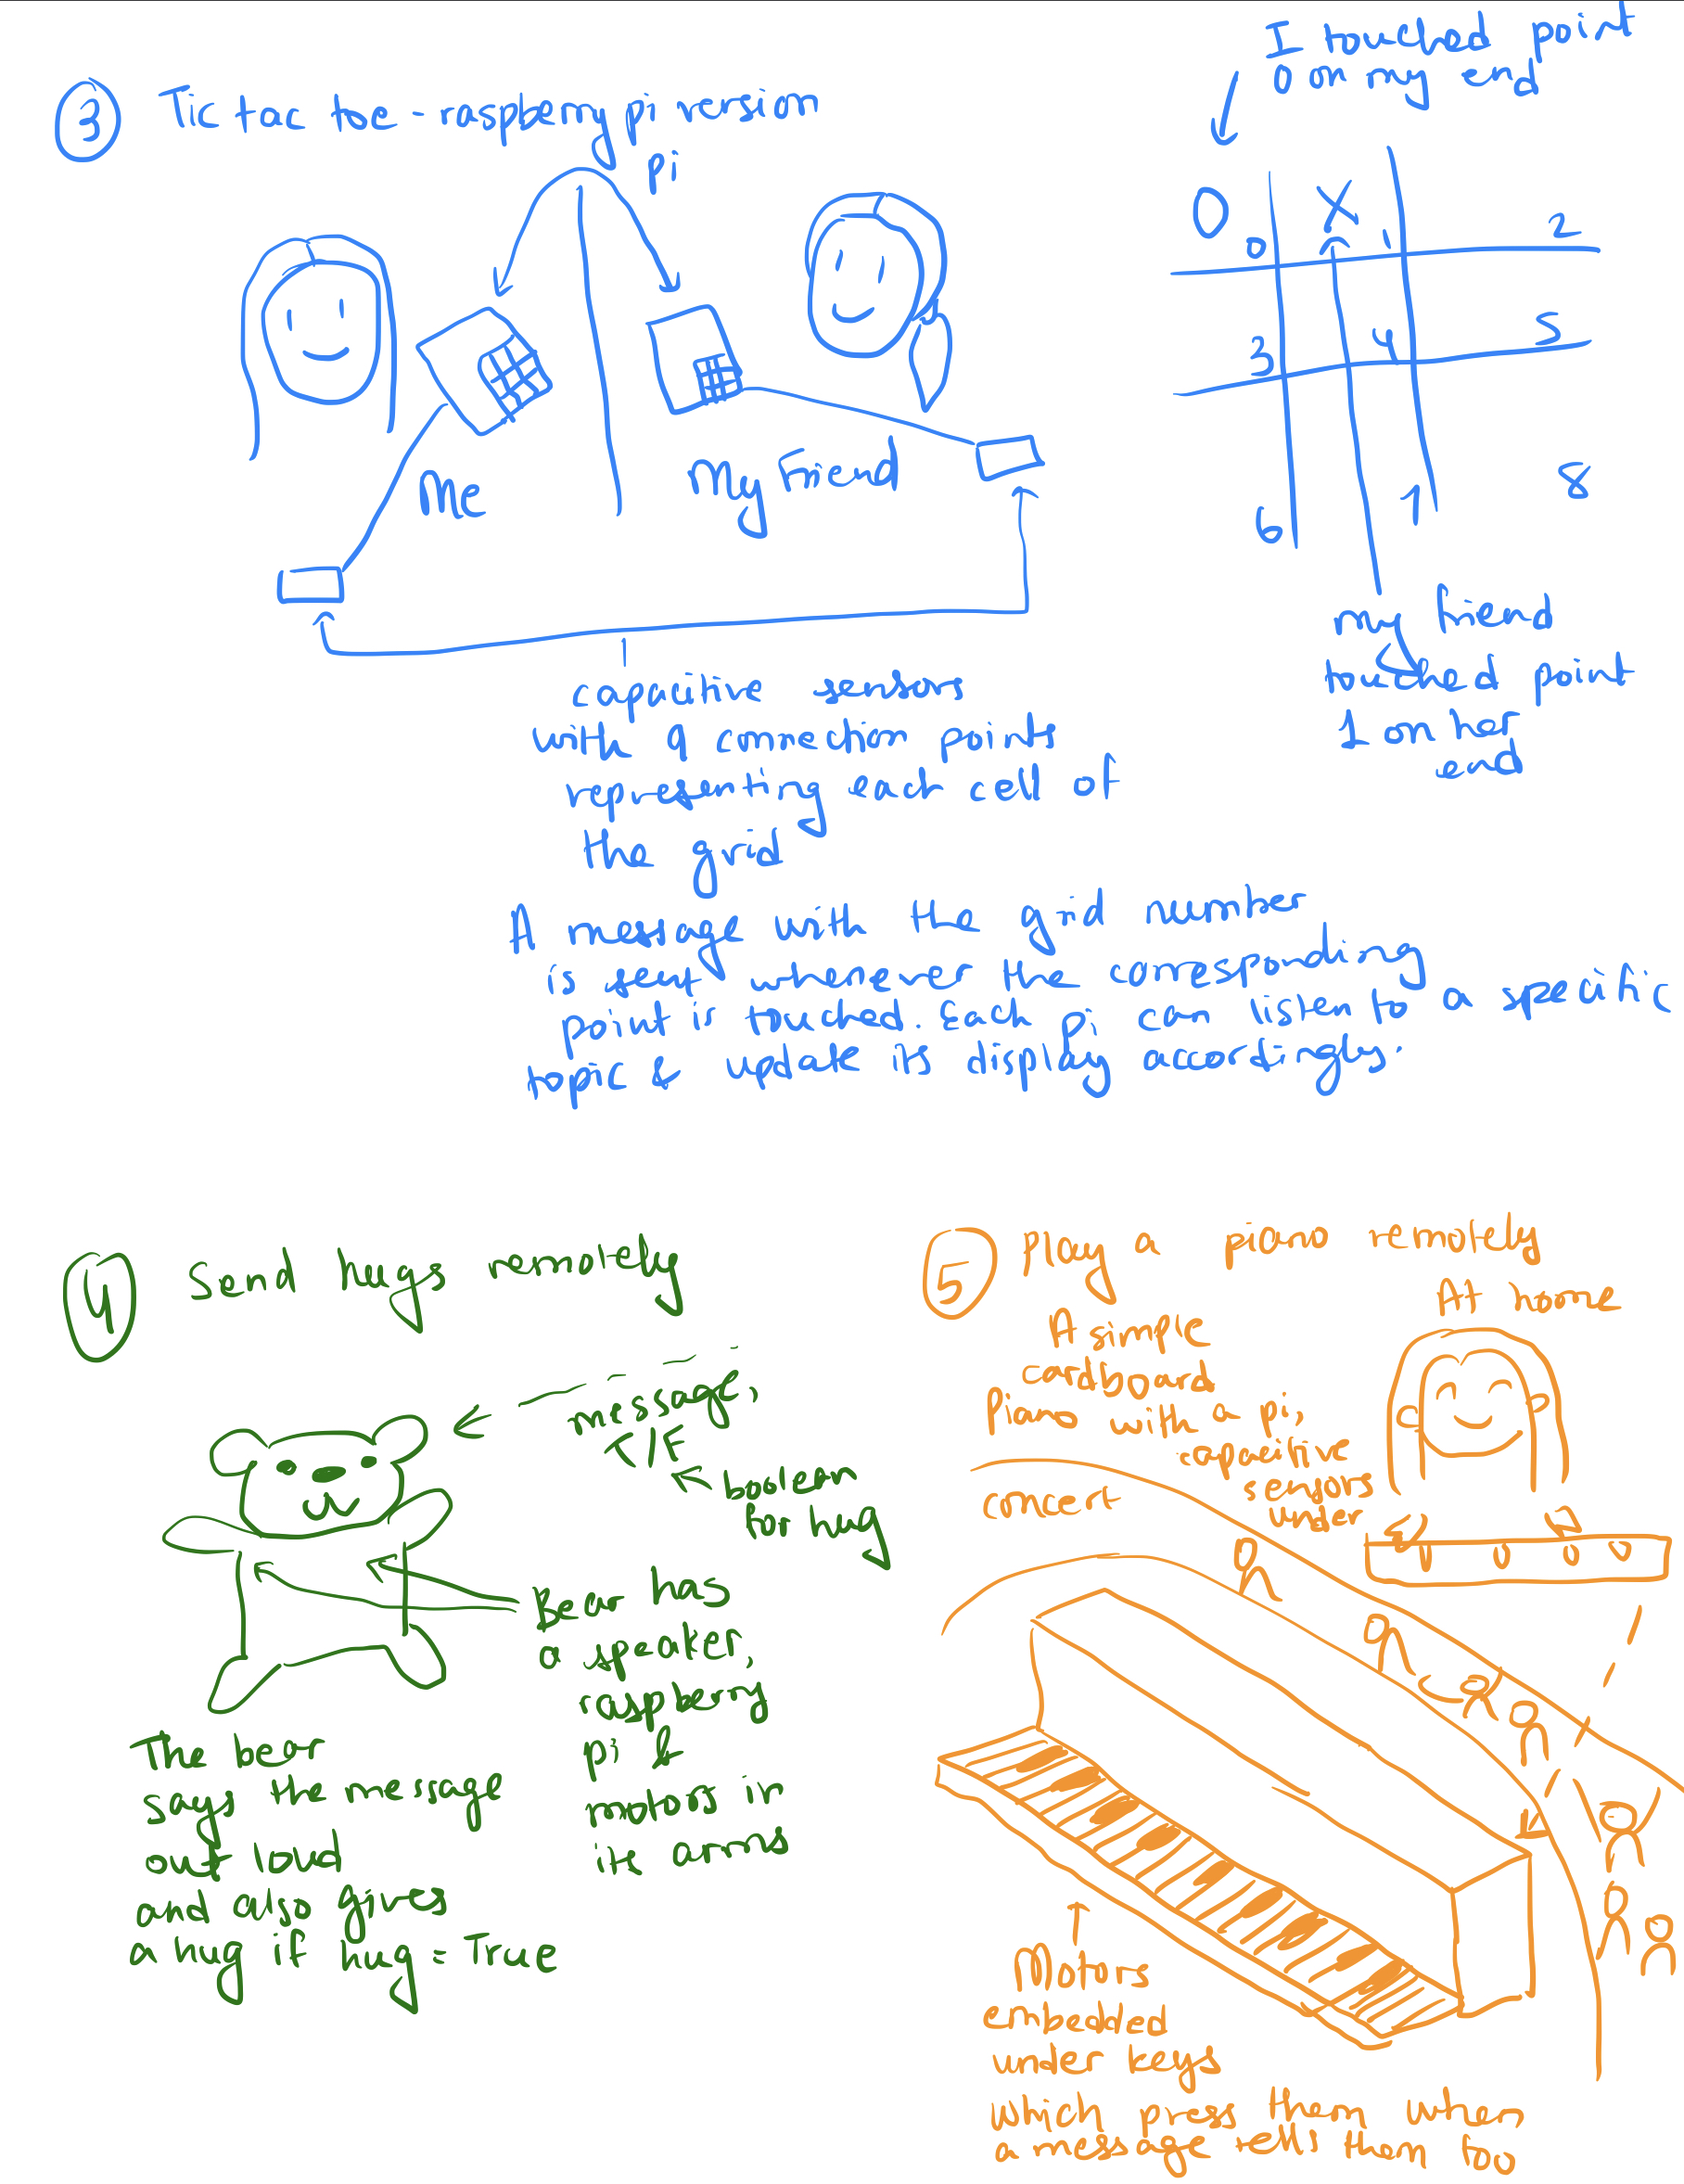 3 Tic tac toe - raspberry pi version
pi
Me
My Friend
capacitive sensors
with 9 connection points
representing each cell of
the grid
I touched point
0 on my end
O X
0 1 2
3 4 5
6 7 8
my friend
touched point
1 on her
end
A message with the grid number
is sent whenever the corresponding
point is touched. Each pi can listen to a specific
topic & update its display accordingly.
4 Send hugs remotely
message,
T/F
boolean
for hug
Bear has
a speaker,
raspberry
pi &
motors in
its arms
The bear
says the message
out loud
and also gives
a hug if hug = True
5 Play a piano remotely
At home
A simple
cardboard
piano with a pi,
capacitive
sensors
under
concert
Motors
embedded
under keys
which press them when
a message tells them too